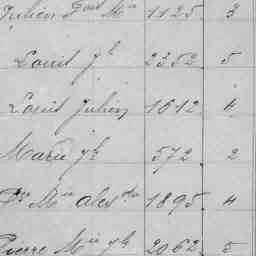 Julien Fois Mie 1125. 3
Louis Jh 2352. 5
Louis Julien 1612. 4
Marie Jh 572. 2
Mie Alesdre 1895. 4
Pierre Mie Jh 2062. 5